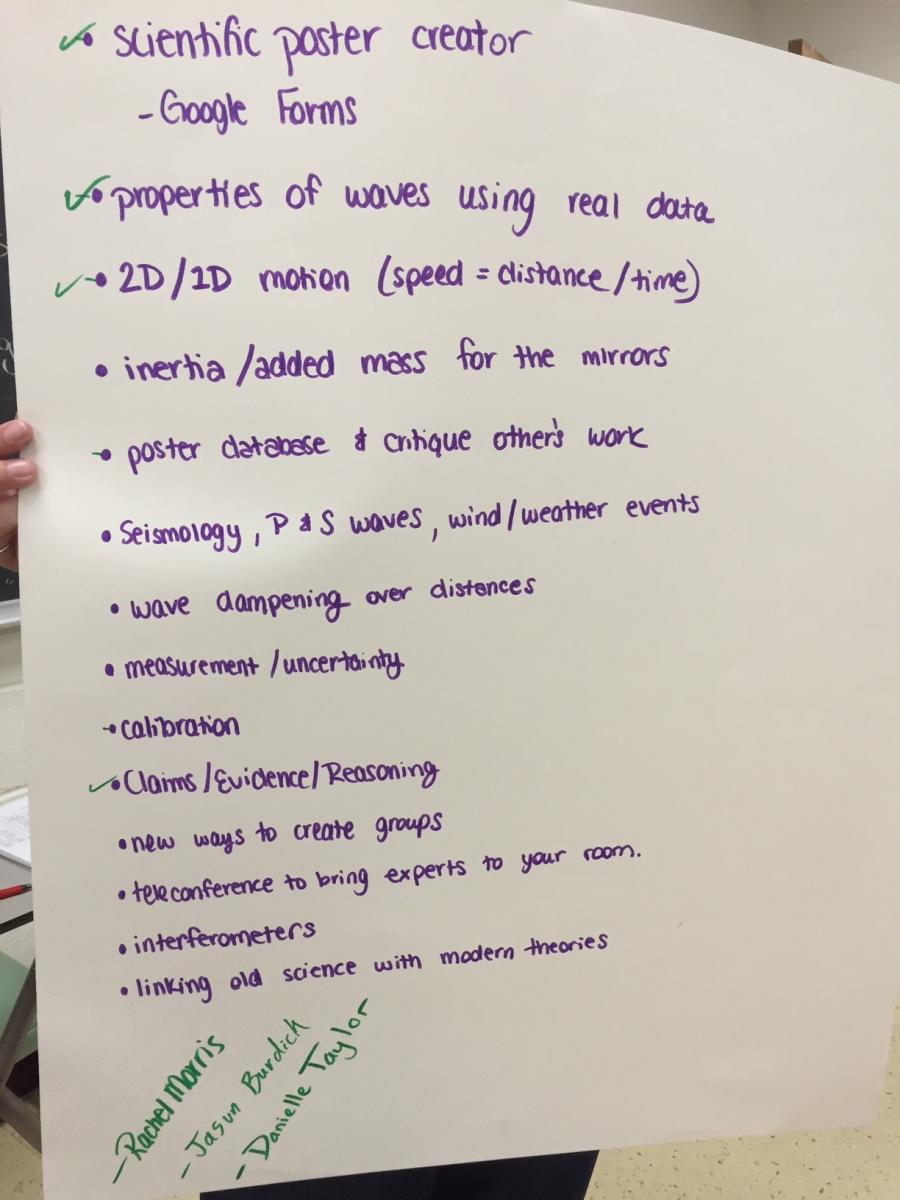 scientific poster creator
- Google Forms
properties of waves using real data
2D/1D motion (speed = distance/time)
inertia/added mass for the mirrors
poster database & critique other's work
Seismology, P & S waves, wind/weather events
wave dampening over distances
measurement/uncertainty
calibration
Claims/Evidence/Reasoning
new ways to create groups
teleconference to bring experts to your room.
interferometers
linking old science with modern theories
- Rachel Morris
- Jason Burdick
- Danielle Taylor